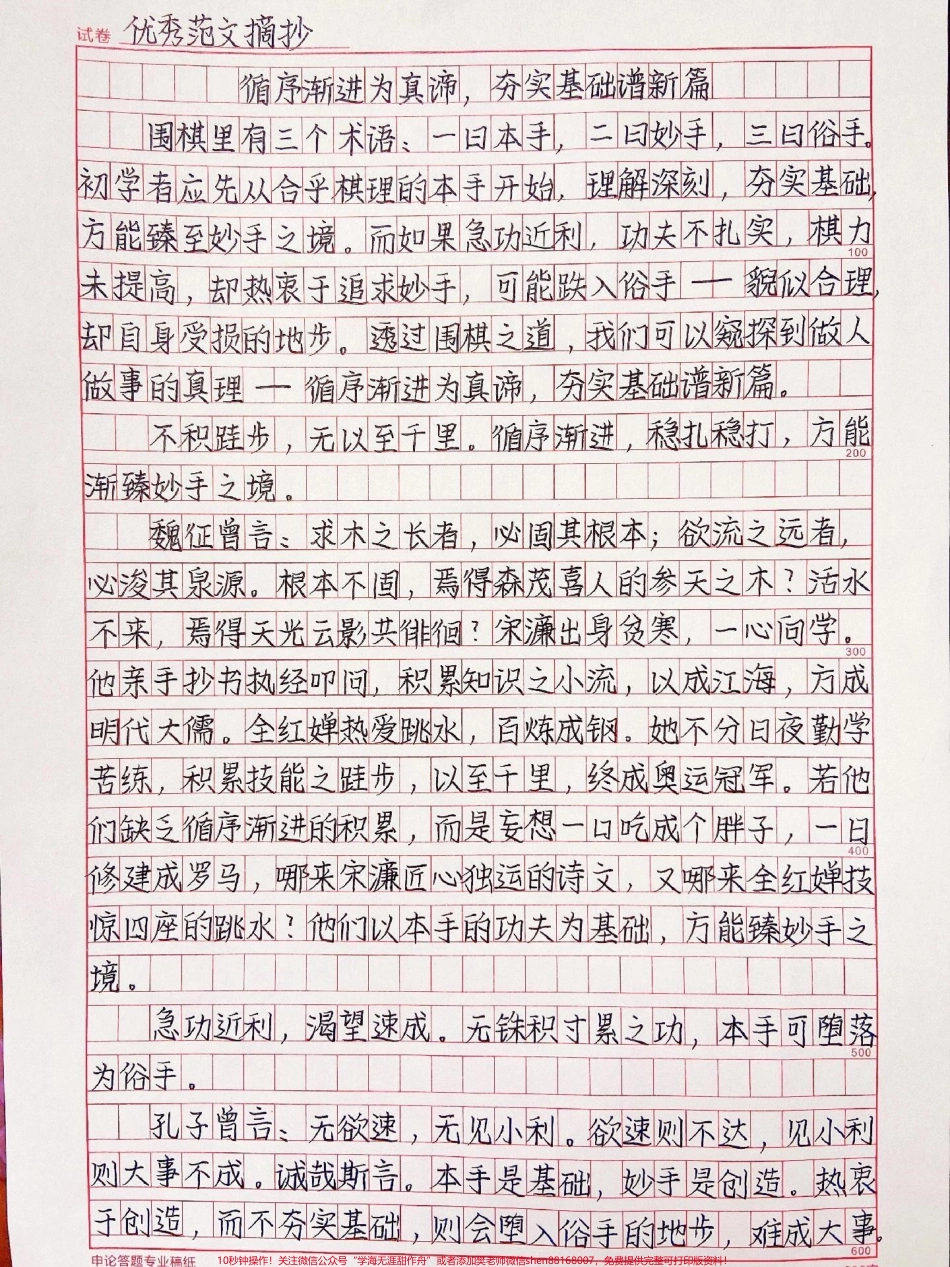 试卷 优秀范文摘抄
循序渐进为真谛，夯实基础谱新篇
围棋里有三个术语：一曰本手，二曰妙手，三曰俗手。
初学者应先从合乎棋理的本手开始，理解深刻，夯实基础，
方能臻至妙手之境。而如果急功近利，功夫不扎实，棋力
100
未提高，却热衷于追求妙手，可能跌入俗手——貌似合理，
却自身受损的地步。透过围棋之道，我们可以窥探到做人
做事的真理——循序渐进为真谛，夯实基础谱新篇。
不积跬步，无以至千里。循序渐进，稳扎稳打，方能
200
渐臻妙手之境。
魏征曾言：求木之长者，必固其根本；欲流之远者，
必浚其泉源。根本不固，焉得森茂喜人的参天之木？活水
不来，焉得天光云影共徘徊？宋濂出身贫寒，一心向学。
300
他亲手抄书执经叩问，积累知识之小流，以成江海，方成
明代大儒。全红婵热爱跳水，百炼成钢。她不分日夜勤学
苦练，积累技能之跬步，以至千里，终成奥运冠军。若他
们缺乏循序渐进的积累，而是妄想一口吃成个胖子，一日
400
修建成罗马，哪来宋濂匠心独运的诗文，又哪来全红婵技
惊四座的跳水？他们以本手的功夫为基础，方能臻妙手之
境。
急功近利，渴望速成。无铢积寸累之功，本手可堕落
500
为俗手。
孔子曾言：无欲速，无见小利。欲速则不达，见小利
则大事不成。诚哉斯言。本手是基础，妙手是创造。热衷
于创造，而不夯实基础，则会堕入俗手的地步，难成大事。
600
申论答题专业稿纸 10秒钟操作！关注微信公众号“学海无涯甜作舟”或者添加樊老师微信shen88168007，免费提供完整可打印版资料！